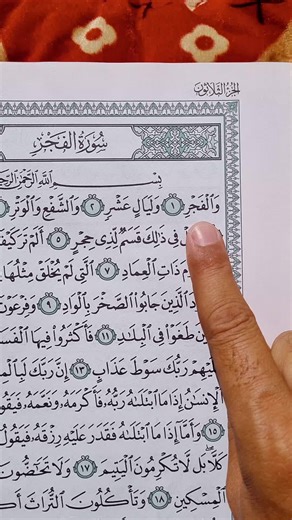 الجُزْءُ الثَّلَاثُونَ
سُورَةُ الفَجْرِ
بِسْمِ ٱللَّهِ ٱلرَّحْمَٰنِ
وَٱلْفَجْرِ ١ وَلَيَالٍ عَشْرٍ ٢ وَٱلشَّفْعِ وَٱلْوَتْرِ
فِى ذَٰلِكَ قَسَمٌ لِّذِى حِجْرٍ ٥ أَلَمْ تَرَ كَيْفَ
ذَاتِ ٱلْعِمَادِ ٧ ٱلَّتِى لَمْ يُخْلَقْ مِثْلُهَا
ٱلَّذِينَ جَابُوا۟ ٱلصَّخْرَ بِٱلْوَادِ ٩ وَفِرْعَوْنَ
طَغَوْا۟ فِى ٱلْبِلَٰدِ ١١ فَأَكْثَرُوا۟ فِيهَا
رَبُّكَ سَوْطَ عَذَابٍ ١٣ إِنَّ رَبَّكَ
ٱلْإِنسَٰنُ إِذَا مَا ٱبْتَلَىٰهُ رَبُّهُۥ فَأَكْرَمَهُۥ وَنَعَّمَهُۥ
١٥ وَأَمَّآ إِذَا مَا ٱبْتَلَىٰهُ فَقَدَرَ عَلَيْهِ رِزْقَهُۥ فَيَقُولُ
كَلَّا ۖ بَل لَّا تُكْرِمُونَ ٱلْيَتِيمَ ١٧ وَلَا تَحَٰٓضُّونَ
ٱلْمِسْكِينِ ١٨ وَتَأْكُلُونَ ٱلتُّرَاثَ